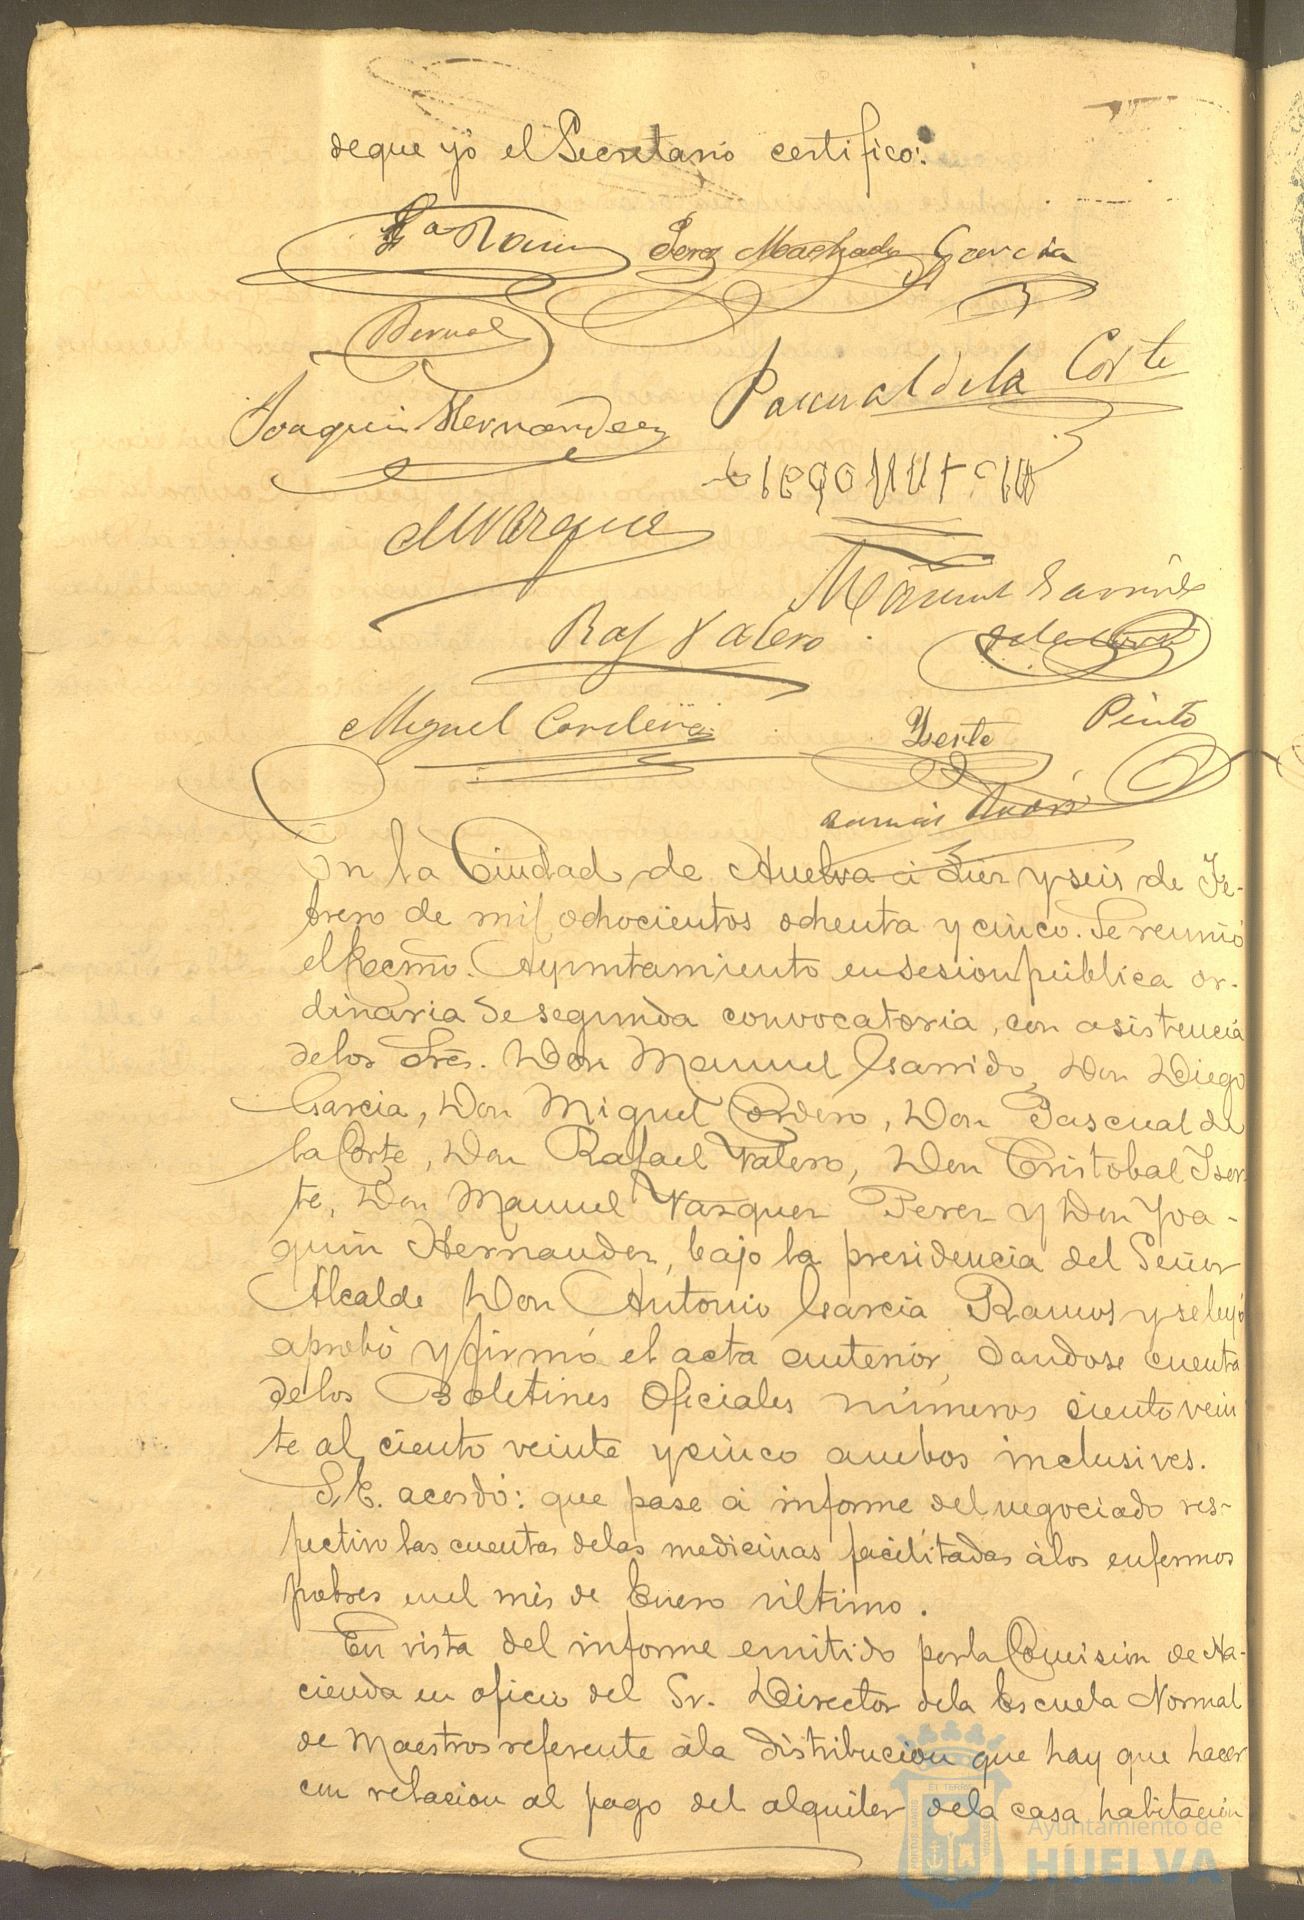 deque yó el Secretario certifico:
Gª Ramos Perez Machado Garcia
Bernal
Joaquin Hernandez Pascual de la Corte
M Vazquez
Manuel Garrido
Raf Valero
Miguel Cordero Yserte Pinto
En la Ciudad de Huelva á diez y seis de Fe-
brero de mil ochocientos ochenta y cinco. Se reunió
el Excmo. Ayuntamiento en sesion pública or-
dinaria de segunda convocatoria, con asistencia
de los Sres. Don Manuel Garrido, Don Diego
Garcia, Don Miguel Cordero, Don Pascual de
la Corte, Don Rafael Valero, Don Cristobal Iser-
te, Don Manuel Vazquez Perez y Don Joa-
quin Hernandez, bajo la presidencia del Señor
Alcalde Don Antonio Garcia Ramos y se leyó
aprobó y firmó el acta anterior, dandose cuenta
de los Boletines Oficiales números ciento vein
te al ciento veinte y cinco ambos inclusives.
S.E. acordó: que pase á informe del negociado res-
pectivo las cuentas delas medicinas facilitadas álos enfermos
pobres en el mes de Enero último.
En vista del informe emitido por la Comision de Ha-
cienda en oficio del Sr. Director dela Escuela Normal
de Maestros referente ála distribucion que hay que hacer
con relacion al pago del alquiler dela casa habitacion
Ayuntamiento de
HUELVA